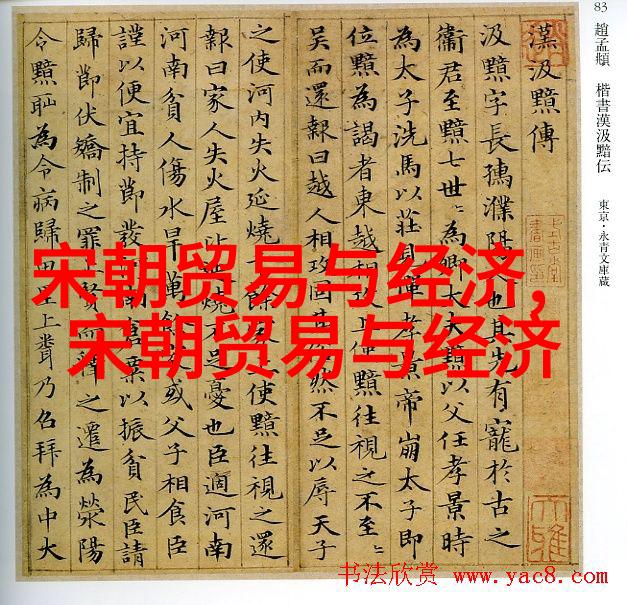 漢汲黯傳
汲黯字長孺濮陽人也其先有寵於古之
衛君至黯七世世為卿大夫黯以父任孝景時
為太子洗馬以莊見憚孝景帝崩太子即
位黯為謁者東越相攻上使黯往視之不至至
吳而還報曰越人相攻固其俗然不足以辱天子
之使河內失火延燒千餘家上使黯往視之還
報曰家人失火屋比延燒不足憂也臣適河南
河南貧人傷水旱萬餘家或父子相食臣
謹以便宜持節發河南倉粟以振貧民臣請
歸節伏矯制之罪上賢而釋之遷為滎陽
令黯恥為令病歸田里上聞乃召拜為中大
宋朝贸易与经济,
宋朝贸易与经济
83
趙孟頫 楷書漢汲黯伝
東京・永青文庫蔵
书法欣赏 www.yac8.com